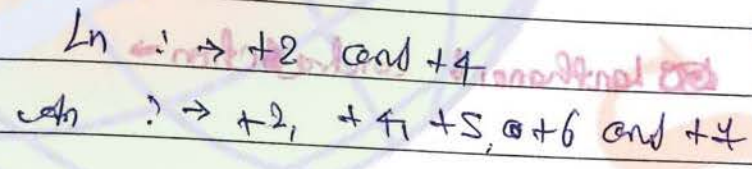 Ln : → +2 and +4
An : → +2, +4, +5, +6 and +7